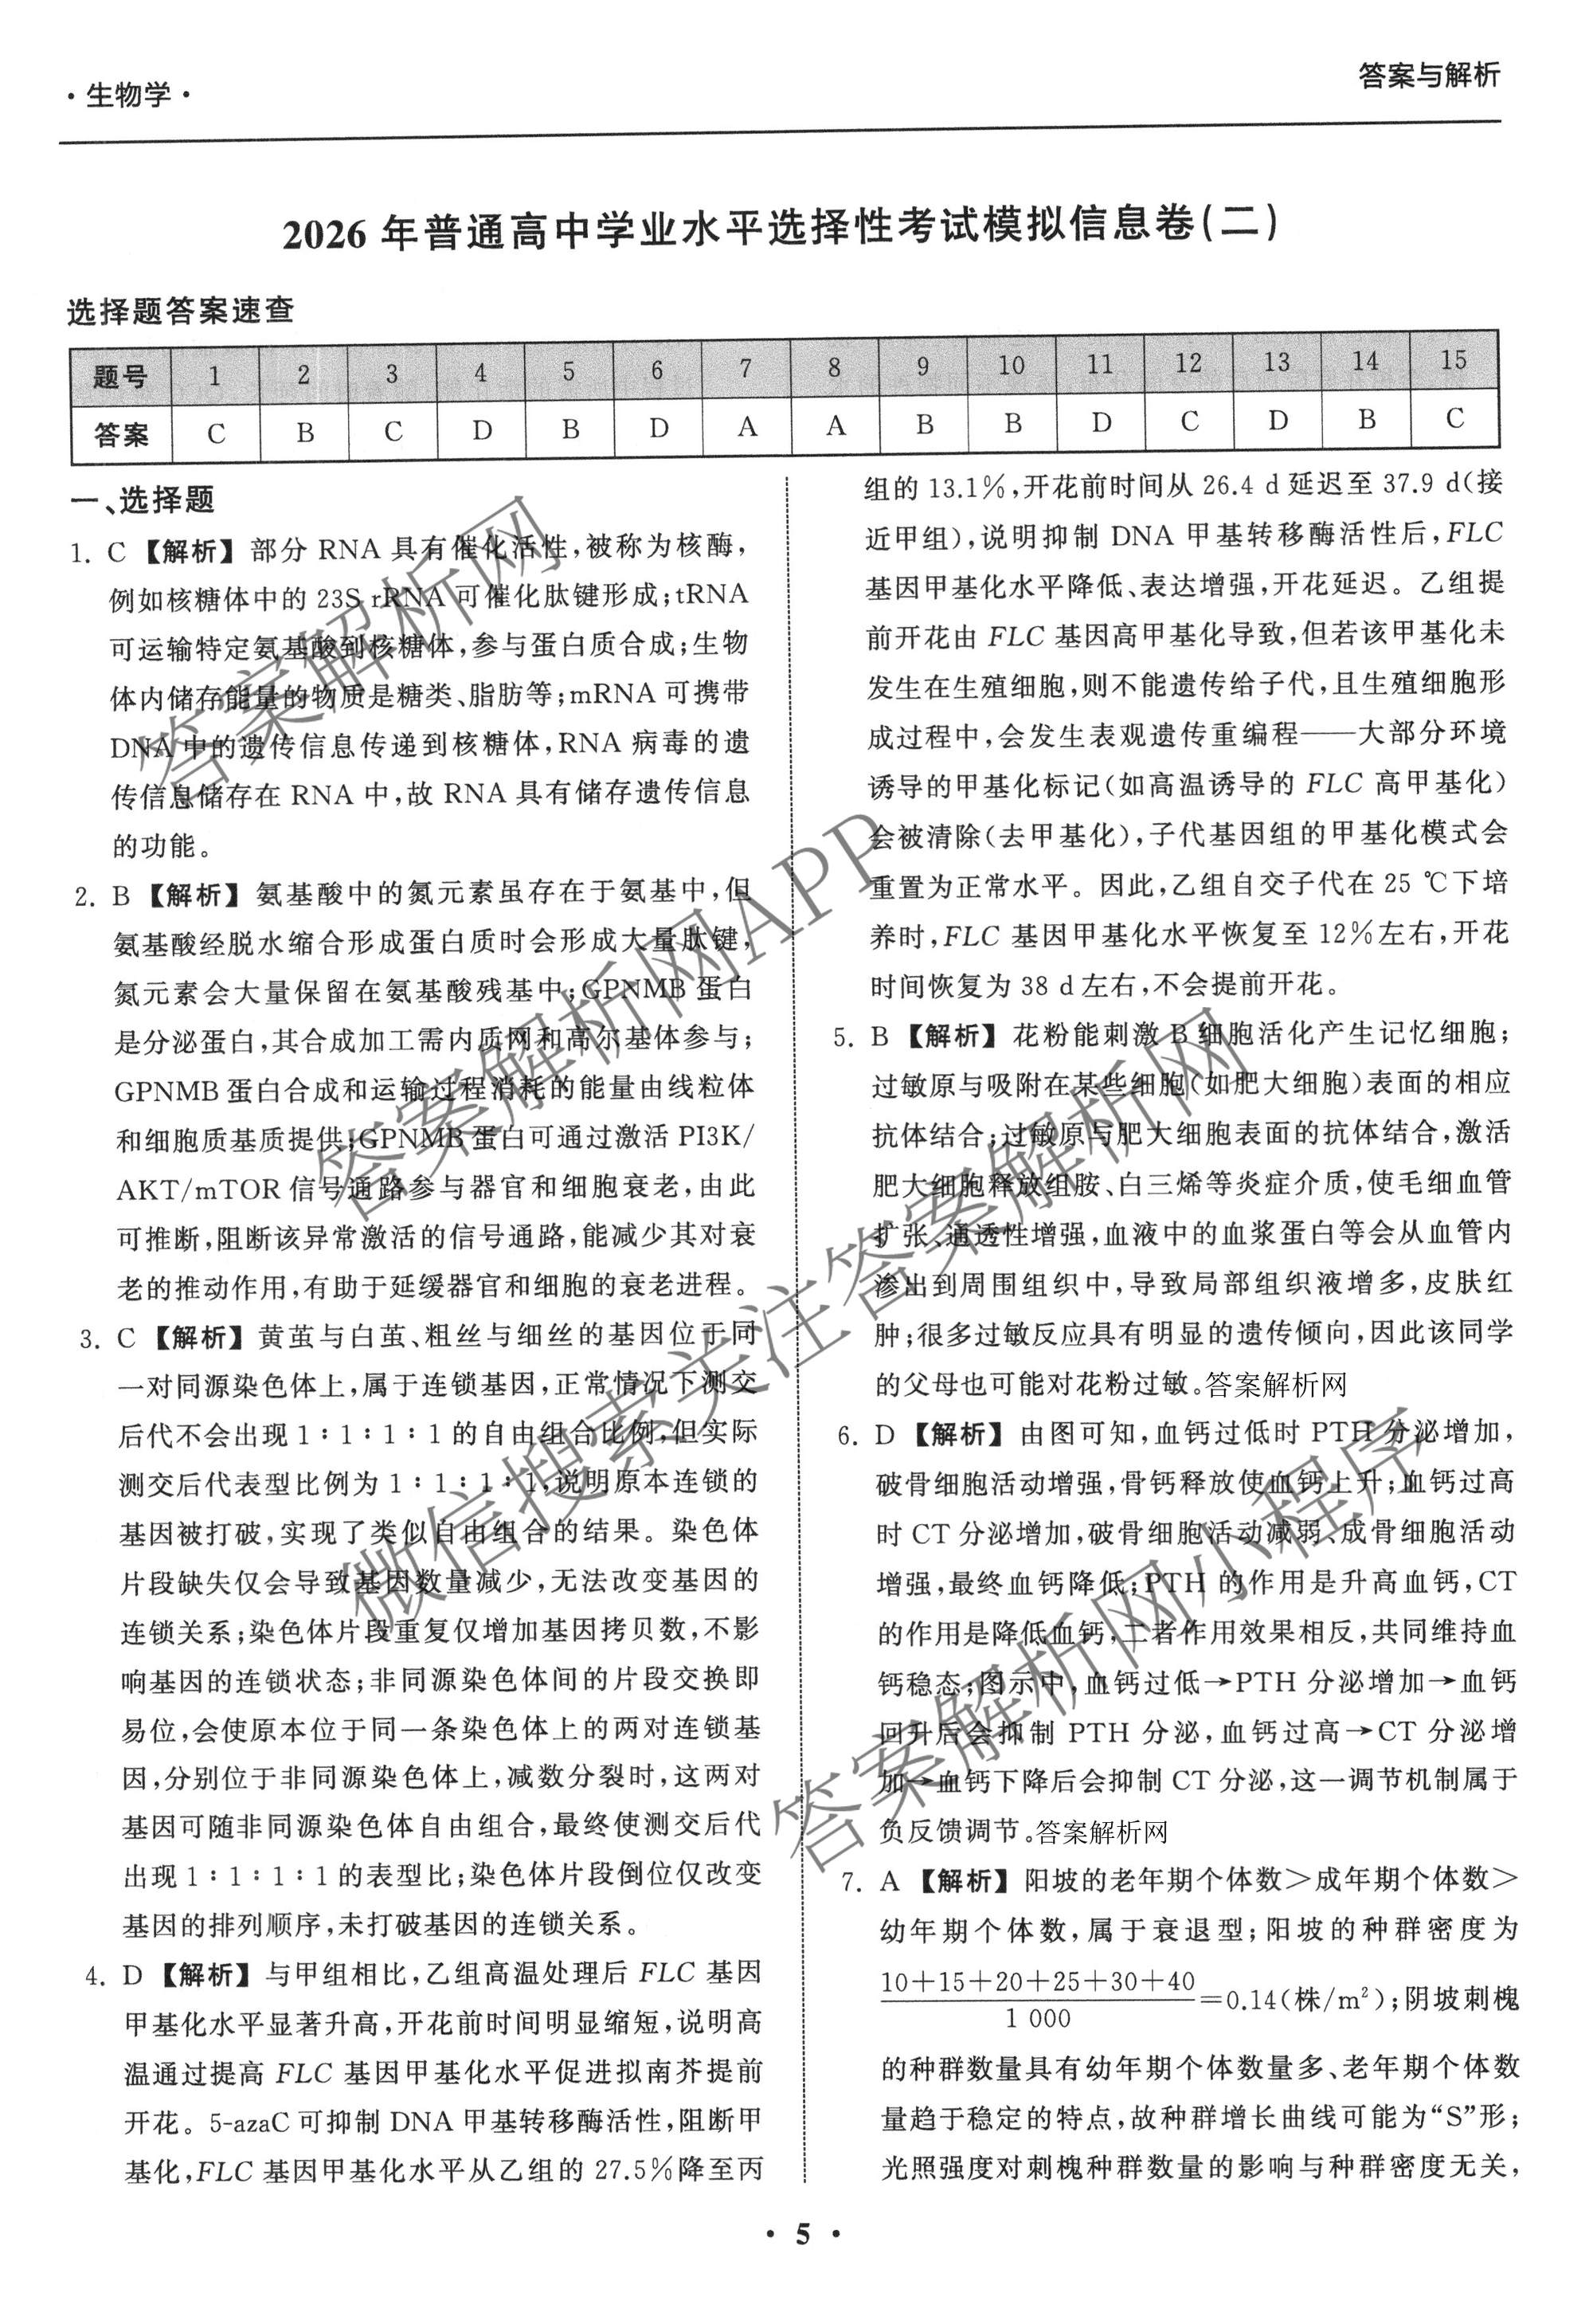 ·生物学·
答案与解析
2026 年普通高中学业水平选择性考试模拟信息卷(二)
选择题答案速查
题号 1 2 3 4 5 6 7 8 9 10 11 12 13 14 15
答案 C B C D B D A A B B D C D B C
一、选择题
1. C 【解析】部分 RNA 具有催化活性,被称为核酶,
例如核糖体中的 23S rRNA 可催化肽键形成;tRNA
可运输特定氨基酸到核糖体,参与蛋白质合成;生物
体内储存能量的物质是糖类、脂肪等;mRNA 可携带
DNA 中的遗传信息传递到核糖体,RNA 病毒的遗
传信息储存在 RNA 中,故 RNA 具有储存遗传信息
的功能。
2. B 【解析】氨基酸中的氮元素虽存在于氨基中,但
氨基酸经脱水缩合形成蛋白质时会形成大量肽键,
氮元素会大量保留在氨基酸残基中;GPNMB 蛋白
是分泌蛋白,其合成加工需内质网和高尔基体参与;
GPNMB 蛋白合成和运输过程消耗的能量由线粒体
和细胞质基质提供;GPNMB 蛋白可通过激活 PI3K/
AKT/mTOR 信号通路参与器官和细胞衰老,由此
可推断,阻断该异常激活的信号通路,能减少其对衰
老的推动作用,有助于延缓器官和细胞的衰老进程。
3. C 【解析】黄茧与白茧、粗丝与细丝的基因位于同
一对同源染色体上,属于连锁基因,正常情况下测交
后代不会出现 1∶1∶1∶1 的自由组合比例,但实际
测交后代表型比例为 1∶1∶1∶1,说明原本连锁的
基因被打破,实现了类似自由组合的结果。染色体
片段缺失仅会导致基因数量减少,无法改变基因的
连锁关系;染色体片段重复仅增加基因拷贝数,不影
响基因的连锁状态;非同源染色体间的片段交换即
易位,会使原本位于同一条染色体上的两对连锁基
因,分别位于非同源染色体上,减数分裂时,这两对
基因可随非同源染色体自由组合,最终使测交后代
出现 1∶1∶1∶1 的表型比;染色体片段倒位仅改变
基因的排列顺序,未打破基因的连锁关系。
4. D 【解析】与甲组相比,乙组高温处理后 FLC 基因
甲基化水平显著升高,开花前时间明显缩短,说明高
温通过提高 FLC 基因甲基化水平促进拟南芥提前
开花。5-azaC 可抑制 DNA 甲基转移酶活性,阻断甲
基化,FLC 基因甲基化水平从乙组的 27.5%降至丙
组的 13.1%,开花前时间从 26.4 d 延迟至 37.9 d(接
近甲组),说明抑制 DNA 甲基转移酶活性后,FLC
基因甲基化水平降低、表达增强,开花延迟。乙组提
前开花由 FLC 基因高甲基化导致,但若该甲基化未
发生在生殖细胞,则不能遗传给子代,且生殖细胞形
成过程中,会发生表观遗传重编程——大部分环境
诱导的甲基化标记(如高温诱导的 FLC 高甲基化)
会被清除(去甲基化),子代基因组的甲基化模式会
重置为正常水平。因此,乙组自交子代在 25 ℃下培
养时,FLC 基因甲基化水平恢复至 12%左右,开花
时间恢复为 38 d 左右,不会提前开花。
5. B 【解析】花粉能刺激 B 细胞活化产生记忆细胞;
过敏原与吸附在某些细胞(如肥大细胞)表面的相应
抗体结合;过敏原与肥大细胞表面的抗体结合,激活
肥大细胞释放组胺、白三烯等炎症介质,使毛细血管
扩张、通透性增强,血液中的血浆蛋白等会从血管内
渗出到周围组织中,导致局部组织液增多,皮肤红
肿;很多过敏反应具有明显的遗传倾向,因此该同学
的父母也可能对花粉过敏。答案解析网
6. D 【解析】由图可知,血钙过低时 PTH 分泌增加,
破骨细胞活动增强,骨钙释放使血钙上升;血钙过高
时 CT 分泌增加,破骨细胞活动减弱、成骨细胞活动
增强,最终血钙降低;PTH 的作用是升高血钙,CT
的作用是降低血钙,二者作用效果相反,共同维持血
钙稳态;图示中,血钙过低→PTH 分泌增加→血钙
回升后会抑制 PTH 分泌,血钙过高→CT 分泌增
加→血钙下降后会抑制 CT 分泌,这一调节机制属于
负反馈调节。答案解析网
7. A 【解析】阳坡的老年期个体数>成年期个体数>
幼年期个体数,属于衰退型;阳坡的种群密度为
10+15+20+25+30+40
1 000
=0.14(株/m²);阴坡刺槐
的种群数量具有幼年期个体数量多、老年期个体数
量趋于稳定的特点,故种群增长曲线可能为“S”形;
光照强度对刺槐种群数量的影响与种群密度无关,
· 5 ·
答案解析网
答案解析网APP
微信搜索关注答案解析网
答案解析网小程序